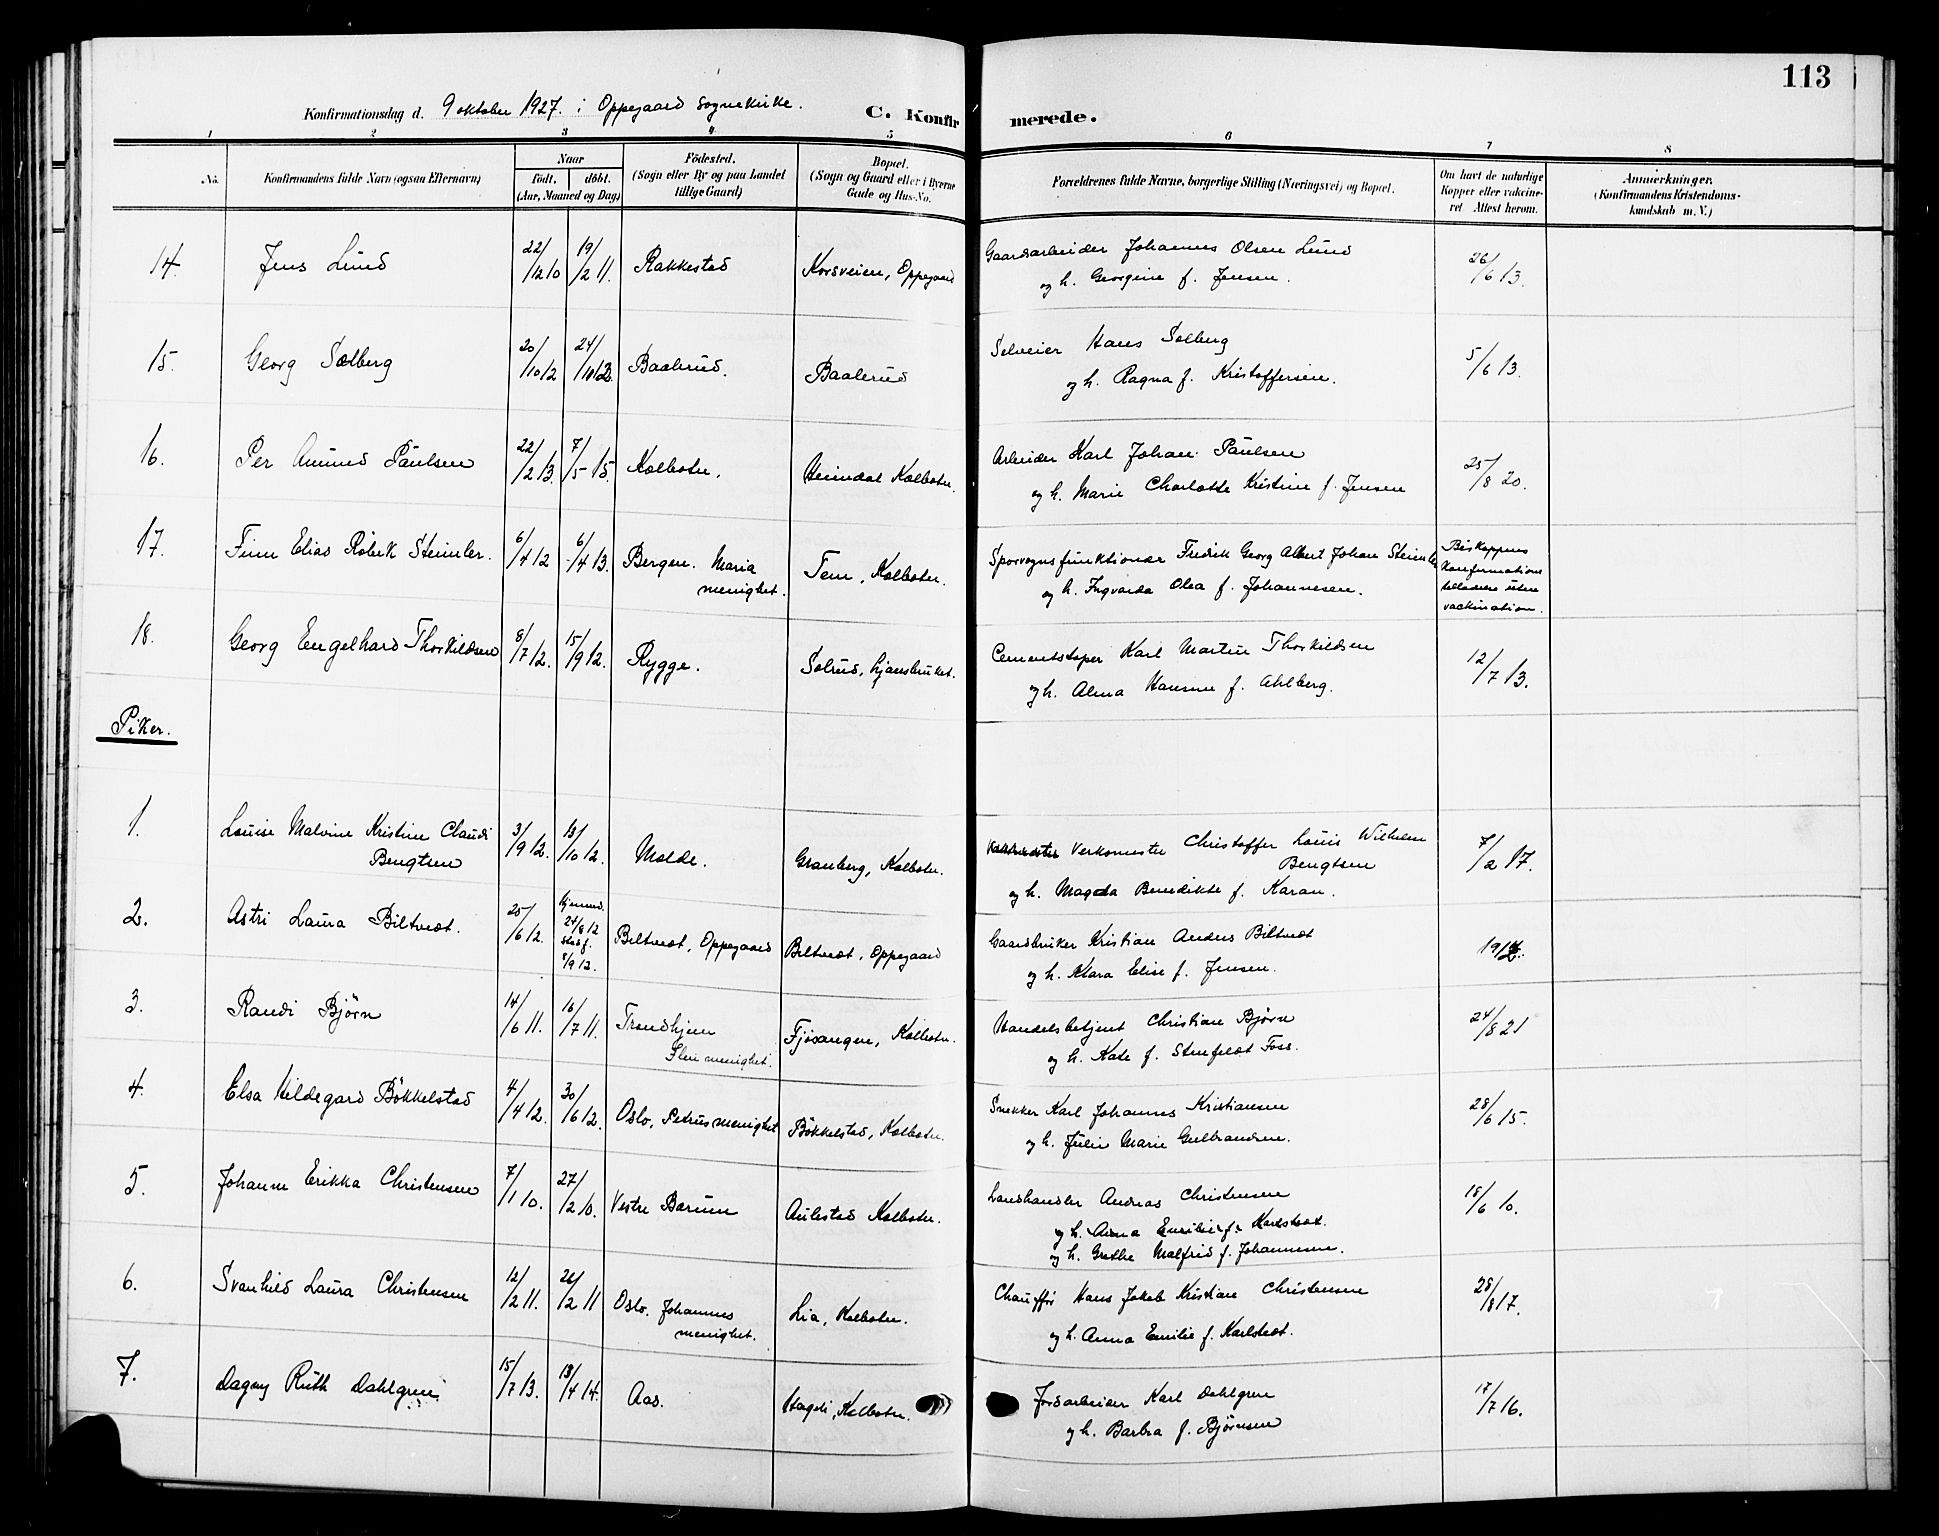 113
Konfirmationsdag d. 9 oktober 1927. i Oppegaard Sognekirke.
C. Konfirmerede.
1 2 3 4 5 6 7 8
No.
Konfirmandens fulde Navn (ogsaa Efternavn)
Naar
født, døbt.
(Aar, Maaned og Dag)
Fødested.
(Sogn eller By og paa Landet
tillige Gaard)
Bopæl.
(Sogn og Gaard eller i Byerne
Gade og Hus-No.
Forældrenes fulde Navne, borgerlige Stilling (Næringsvei) og Bopæl.
Om havt de naturlige
Kopper eller vakcine-
ret. Attest herom.
Anmærkninger.
(Konfirmandens Kristendoms-
kundskab m. V.)
14. Jens Lund 22/12 10 19/2 11. Rakkestad Korsveien, Oppegaard Gaardsarbeider Johannes Olsen Lund 26/6 13.
og h. Georgine f. Jensen.
15. Georg Solberg 20/10 12 24/10 12. Baalerud. Baalerud Selveier Hans Solberg 5/6 13.
og h. Ragna f. Kristoffersen.
16. Per Amund Paulsen 22/2 13. 7/5 15. Kolbotn. Heimdal Kolbotn. Arbeider Karl Johan Paulsen 25/8 20.
og h. Marie Charlotte Kristine f. Jensen
17. Finn Elias Röbek Steimler. 6/4 12 6/4 13. Bergen. Maria Tem, Kolbotn. Sporvognsfunktionær Fredrik Georg Albert Johan Steimler Biskoppens
menighet. og h. Ingvarda Olea f. Johannesen. Konfirmations
tilladelse uten
vackination.
18. Georg Engelhard Thorkildsen 8/7 12. 15/9 12. Rygge. Solrud, Ljansbruket. Cementstöper Karl Martin Thorkildsen 12/7 13.
og h. Alma Hansine f. Ahlberg.
Piker.
1. Louise Malvine Kristine Claudi 3/9 12. 13/10 12. Molde. Granberg, Kolbotn. Verksmester Christoffer Louis Wilhelm 7/2 17.
Bengtsen Bengtsen
og h. Magda Benedikte f. Karan.
2. Astri Laura Biltvedt. 25/6 12. hjemmed. 24/6 12 stadf. 8/9 12. Biltvedt, Oppegaard Biltvedt, Oppegaard Gaardbruker Kristian Anders Biltvedt 1912.
og h. Klara Elise f. Jensen.
3. Randi Björn 14/6 11. 16/7 11. Trondhjem Fjösangen, Kolbotn. Handelsbetjent Christian Björn 24/8 21
Ilen menighet. og h. Kate f. Stenfeldt Foss.
4. Elsa Hildegard Bökkelstad 4/4 12. 30/6 12. Oslo, Petrus menighet Bökkelstad, Kolbotn. Snekker Karl Johannes Kristiansen 28/6 15.
og h. Julie Marie Gulbrandsen.
5. Johanne Erikka Christensen 7/1 10. 27/2 10. Vestre Bærum Aulestad Kolbotn. Landhandler Andreas Christensen 18/6 10.
og h. Anna Emilie f. Karlstedt.
og h. Grethe Malfrid f. Johannesen.
6. Svanhild Laura Christensen 12/2 11. 26/2 11 Oslo. Johannes Lia, Kolbotn. Chauffør Hans Jakob Kristian Christensen 28/8 17.
menighet. og h. Anna Emilie f. Karlstedt.
7. Dagny Ruth Dahlgren 15/7 13. 13/4 14. Aas. Hageli, Kolbotn. Jordarbeider Karl Dahlgren 17/7 16.
og h. Barbra f. Björnsen